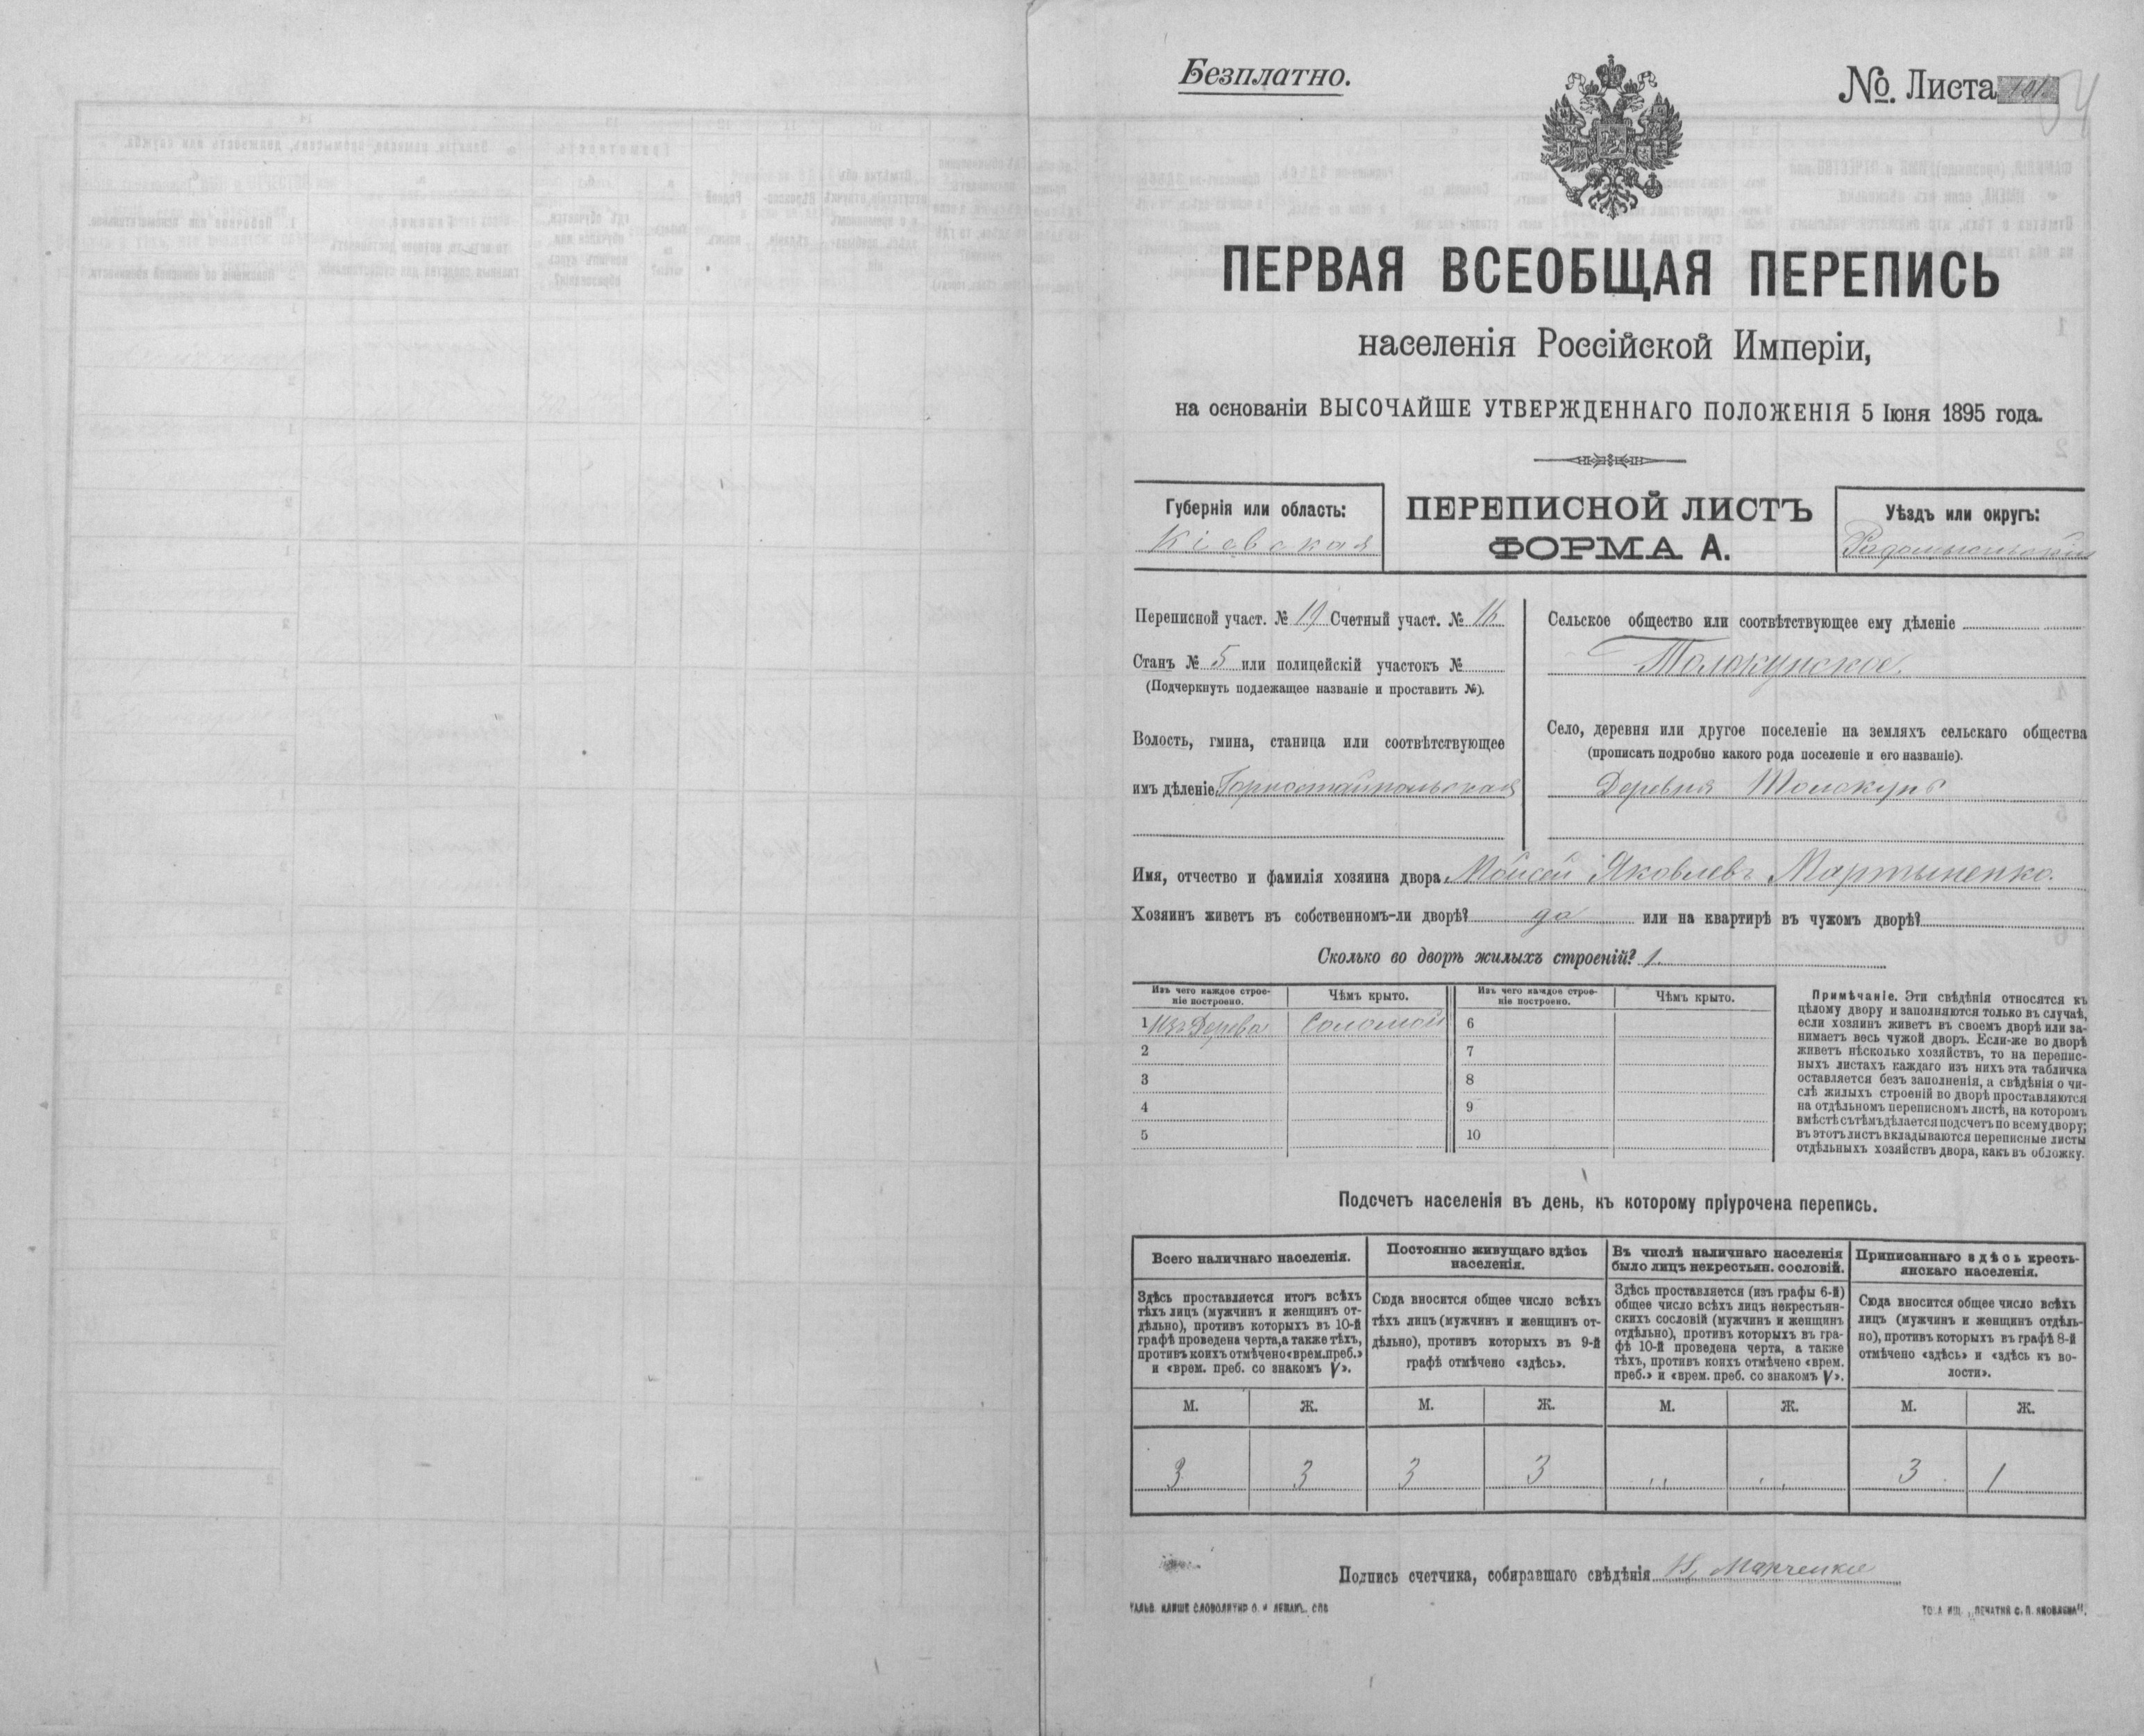 Безплатно.
№ Листа 101
54
ПЕРВАЯ ВСЕОБЩАЯ ПЕРЕПИСЬ
населенія Россійской Имперіи,
на основаніи ВЫСОЧАЙШЕ УТВЕРЖДЕННАГО ПОЛОЖЕНІЯ 5 Іюня 1895 года.
Губернія или область:
Кіевская
ПЕРЕПИСНОЙ ЛИСТЪ
ФОРМА А.
Уѣздъ или округъ:
Радомысльскій
Переписной участ. № 19 Счетный участ. № 16
Станъ № 5 или полицейскій участокъ №
(Подчеркнуть подлежащее названіе и проставить №).
Волость, гмина, станица или соотвѣтствующее
имъ дѣленіе Горностайпольская
Сельское общество или соотвѣтствующее ему дѣленіе
Толокунское
Село, деревня или другое поселеніе на земляхъ сельскаго общества
(прописать подробно какого рода поселеніе и его названіе).
Деревня Толокунь
Имя, отчество и фамилія хозяина двора Мойсей Яковлевъ Мартыненко.
Хозяинъ живетъ въ собственномъ-ли дворѣ? да или на квартирѣ въ чужомъ дворѣ?
Сколько во дворѣ жилыхъ строеній? 1.
Изъ чего каждое строе-
ніе построено.
Чѣмъ крыто.
Изъ чего каждое строе-
ніе построено.
Чѣмъ крыто.
1 Изъ Дерева Соломой 6
2 7
3 8
4 9
5 10
Примѣчаніе. Эти свѣдѣнія относятся къ
цѣлому двору и заполняются только въ случаѣ,
если хозяинъ живетъ въ своемъ дворѣ или за-
нимаетъ весь чужой дворъ. Если-же во дворѣ
живетъ нѣсколько хозяйствъ, то на перепис-
ныхъ листахъ каждаго изъ нихъ эта табличка
оставляется безъ заполненія, а свѣдѣнія о чи-
слѣ жилыхъ строеній во дворѣ проставляются
на отдѣльномъ переписномъ листѣ, на которомъ
вмѣстѣ съ тѣмъ дѣлается подсчетъ по всему двору;
въ этотъ листъ вкладываются переписные листы
отдѣльныхъ хозяйствъ двора, какъ въ обложку.
Подсчетъ населенія въ день, къ которому пріурочена перепись.
Всего наличнаго населенія.
Здѣсь проставляется итогъ всѣхъ
тѣхъ лицъ (мужчинъ и женщинъ от-
дѣльно), противъ которыхъ въ 10-й
графѣ проведена черта, а также тѣхъ,
противъ коихъ отмѣчено «врем. преб.»
и «врем. преб. со знакомъ V».
Постоянно живущаго здѣсь
населенія.
Сюда вносится общее число всѣхъ
тѣхъ лицъ (мужчинъ и женщинъ от-
дѣльно), противъ которыхъ въ 9-й
графѣ отмѣчено «здѣсь».
Въ числѣ наличнаго населенія
было лицъ некрестьян. сословій.
Здѣсь проставляется (изъ графы 6-й)
общее число всѣхъ лицъ некрестьян-
скихъ сословій (мужчинъ и женщинъ
отдѣльно), противъ которыхъ въ гра-
фѣ 10-й проведена черта, а также
тѣхъ, противъ коихъ отмѣчено «врем.
преб.» и «врем. преб. со знакомъ V».
Приписаннаго здѣсь кресть-
янскаго населенія.
Сюда вносится общее число всѣхъ
лицъ (мужчинъ и женщинъ отдѣль-
но), противъ которыхъ въ графѣ 8-й
отмѣчено «здѣсь» и «здѣсь къ во-
лости».
М. Ж. М. Ж. М. Ж. М. Ж.
3 3 3 3 " " 3 1
Подпись счетчика, собиравшаго свѣдѣнія Н. Марченко